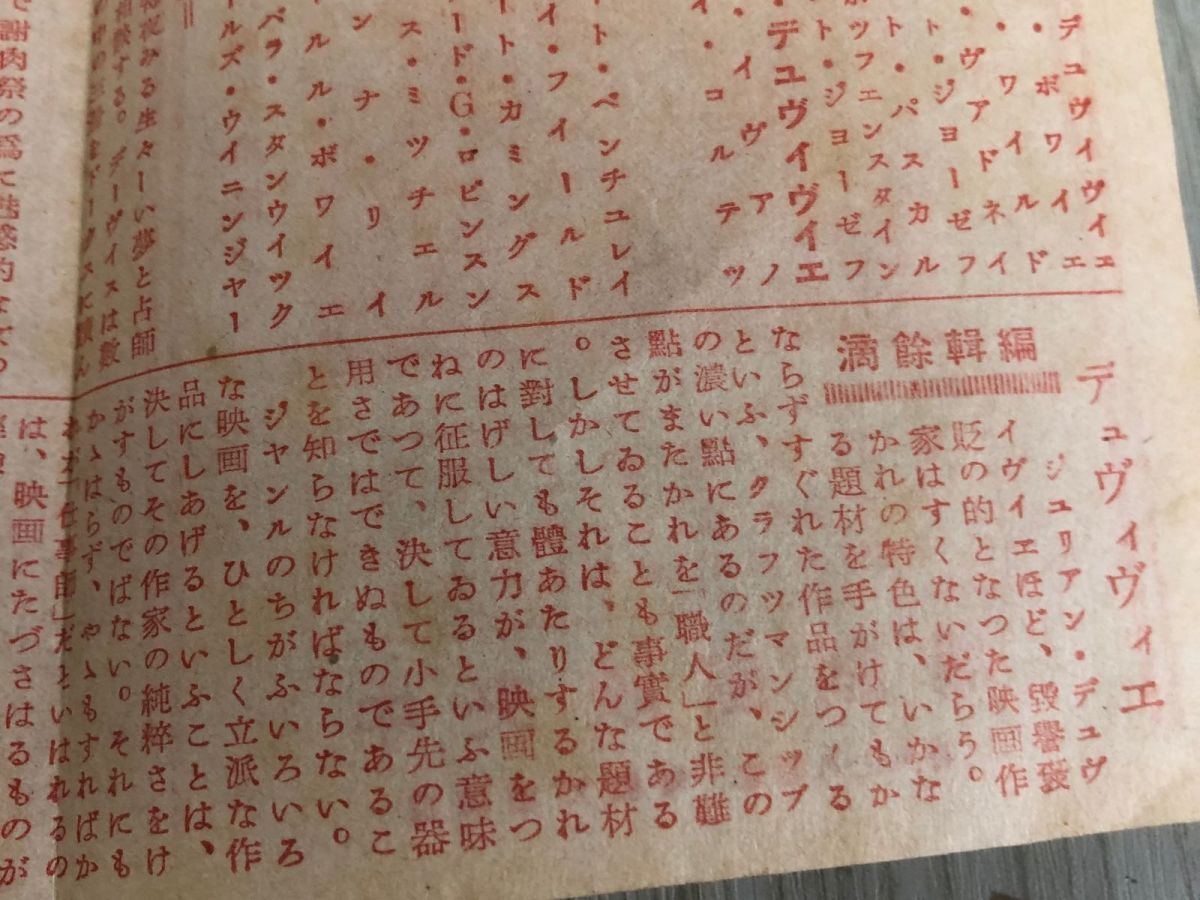 デュヴィヴィエ
・ボワイエ
・ワイルド
・ヴアドネイ
ト・ジョーゼフ
ト・パスカル
ホツフエンスタイン
ト・ジョーゼフ
・デュヴィヴィエ
・イヴアノ
・コルテツ
ト・ペンチユレイ
イ・フイールド
ート・カミングス
ード・G・ロビンスン
ス・ミツチエル
ンナ・リイ
ルル・ボワイエ
バラ・スタンウイツク
ールズ・ウイニンジヤー
毎夜みる生々しい夢と占師
する。デーヴイスは數
で謝肉祭の爲に魅惑的な
編輯餘滴
デュヴィヴィエ
ジユリアン・デユヴ
イヴイエほど、毀譽褒
貶の的となつた映画作
家はすくないだらう。
かれの特色は、いかな
る題材を手がけてもか
ならずすぐれた作品をつくる
といふ、クラフツマンシツプ
の濃い點にあるのだが、この
點がまたかれを「職人」と非難
させてゐることも事實である
。しかしそれは、どんな題材
に對しても體あたりするかれ
のはげしい意力が、映画をつ
ねに征服してゐるといふ意味
であつて、決して小手先の器
用さではできぬものであるこ
とを知らなければならない。
ジヤンルのちがふいろいろ
な映画を、ひとしく立派な作
品にしあげるといふことは、
決してその作家の純粹さをけ
がすものではない。それにも
かゝはらず、やゝもすればか
れが「仕事師」だといはれるの
は、映画にたづさはるものが